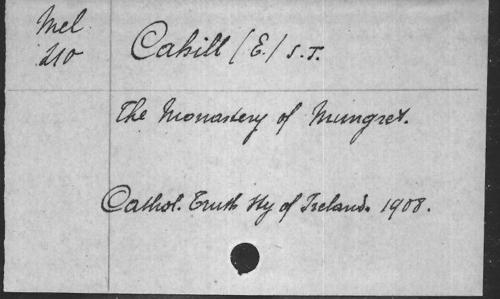 Mel.
210
Cahill (E.) S.J.
The Monastery of Mungret.
Cathol. Truth Sty of Ireland. 1908.